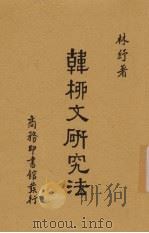 林紓著
韓柳文研究法
商務印書館發行
www.toutu.com